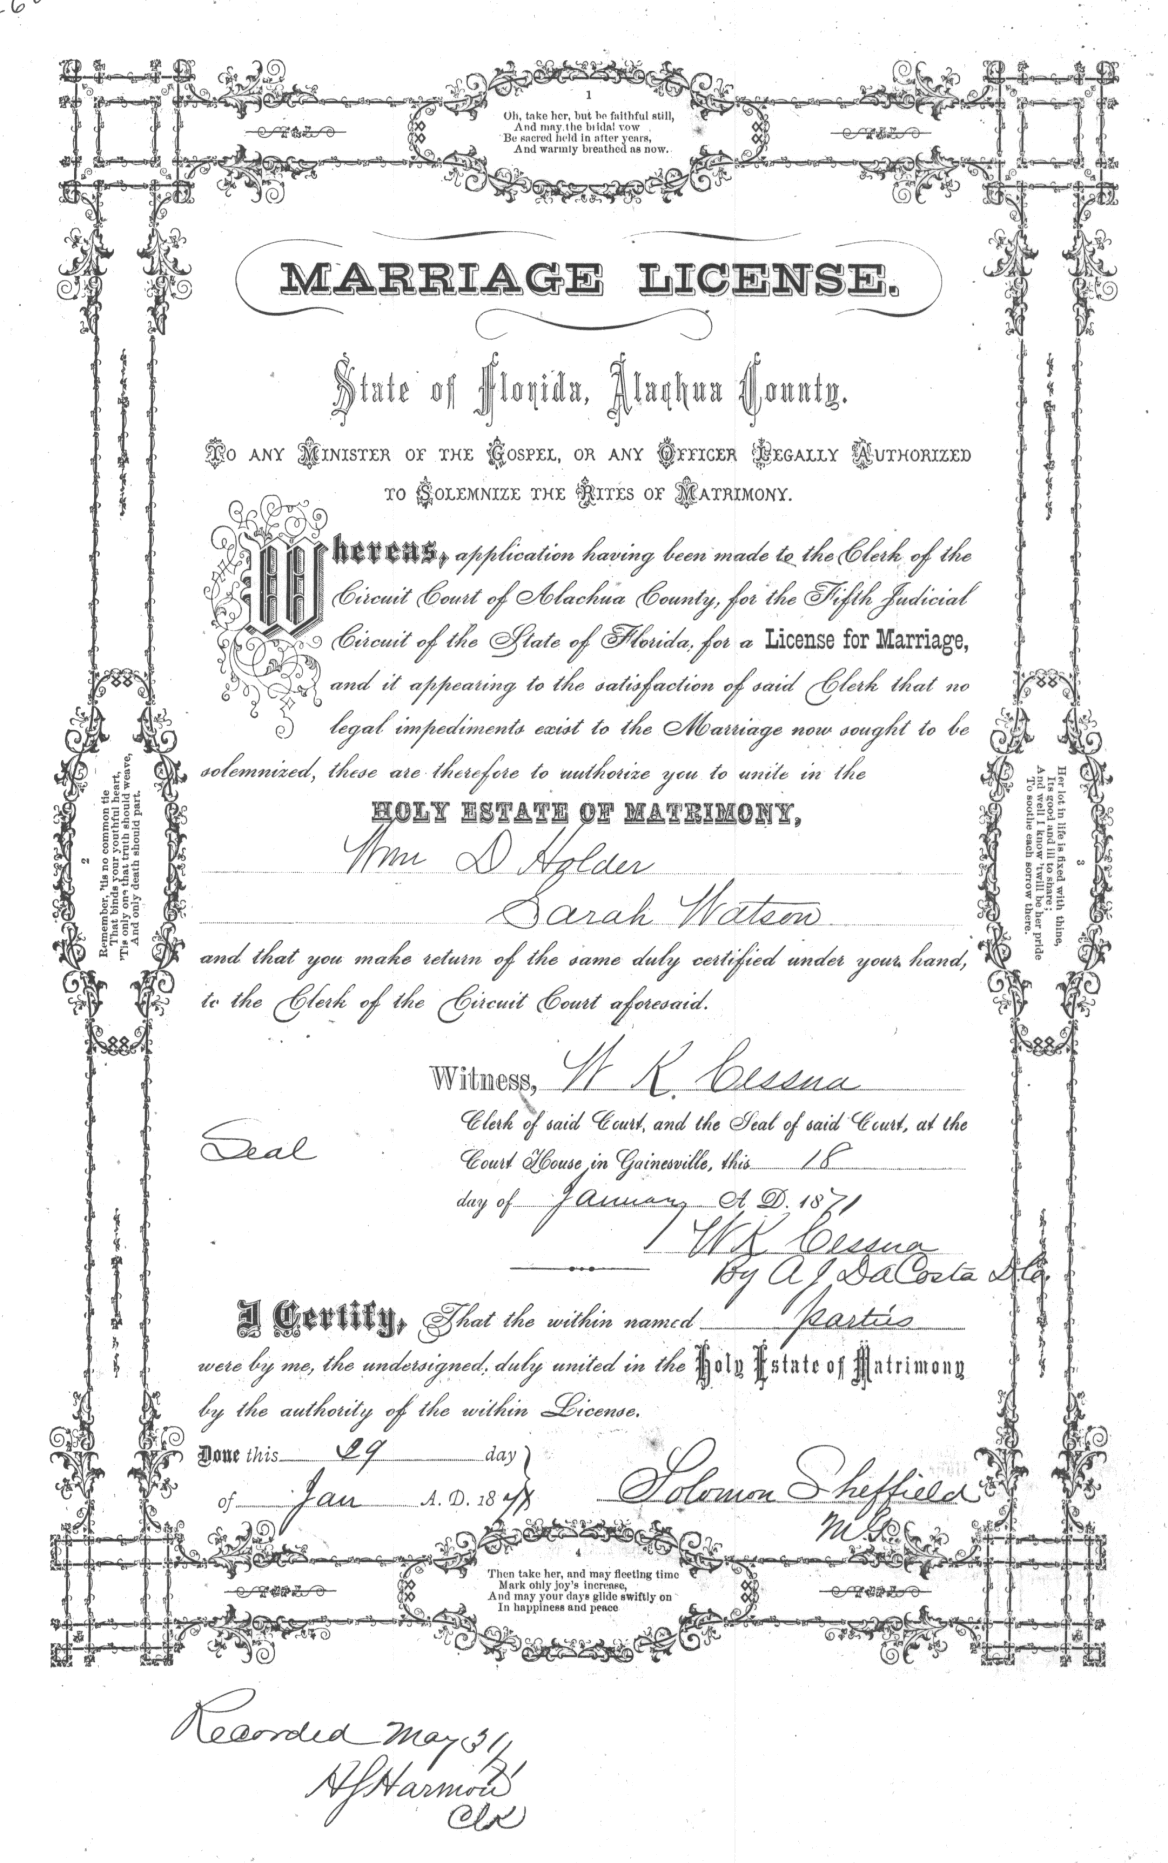 1
Oh, take her, but be faithful still,
And may the bridal vow
Be sacred held in after years,
And warmly breathed as now.
MARRIAGE LICENSE.
State of Florida, Alachua County.
TO ANY MINISTER OF THE GOSPEL, OR ANY OFFICER LEGALLY AUTHORIZED
TO SOLEMNIZE THE RITES OF MATRIMONY.
Whereas, application having been made to the Clerk of the
Circuit Court of Alachua County, for the Fifth Judicial
Circuit of the State of Florida, for a License for Marriage,
and it appearing to the satisfaction of said Clerk that no
legal impediments exist to the Marriage now sought to be
solemnized, these are therefore to authorize you to unite in the
HOLY ESTATE OF MATRIMONY,
Wm D Holder
Sarah Watson
and that you make return of the same duly certified under your hand,
to the Clerk of the Circuit Court aforesaid.
Witness, W K. Cessna
Clerk of said Court, and the Seal of said Court, at the
Seal
Court House in Gainesville, this 18
day of January A. D. 1871
W K Cessna
By A J DaCosta D.C.
I Certify, That the within named parties
were by me, the undersigned, duly united in the Holy Estate of Matrimony
by the authority of the within License.
Done this 29 day
of Jan A. D. 1871
Solomon Sheffield
M G.
2
Remember, 'tis no common tie
That binds your youthful heart,
'Tis only one that truth should weave,
And only death should part.
3
Her lot in life is fixed with thine,
Its good and ill to share;
And well I know 'twill be her pride
To soothe each sorrow there.
4
Then take her, and may fleeting time
Mark only joy's increase,
And may your days glide swiftly on
In happiness and peace
Recorded May 31/71
H J Harmon
Clk